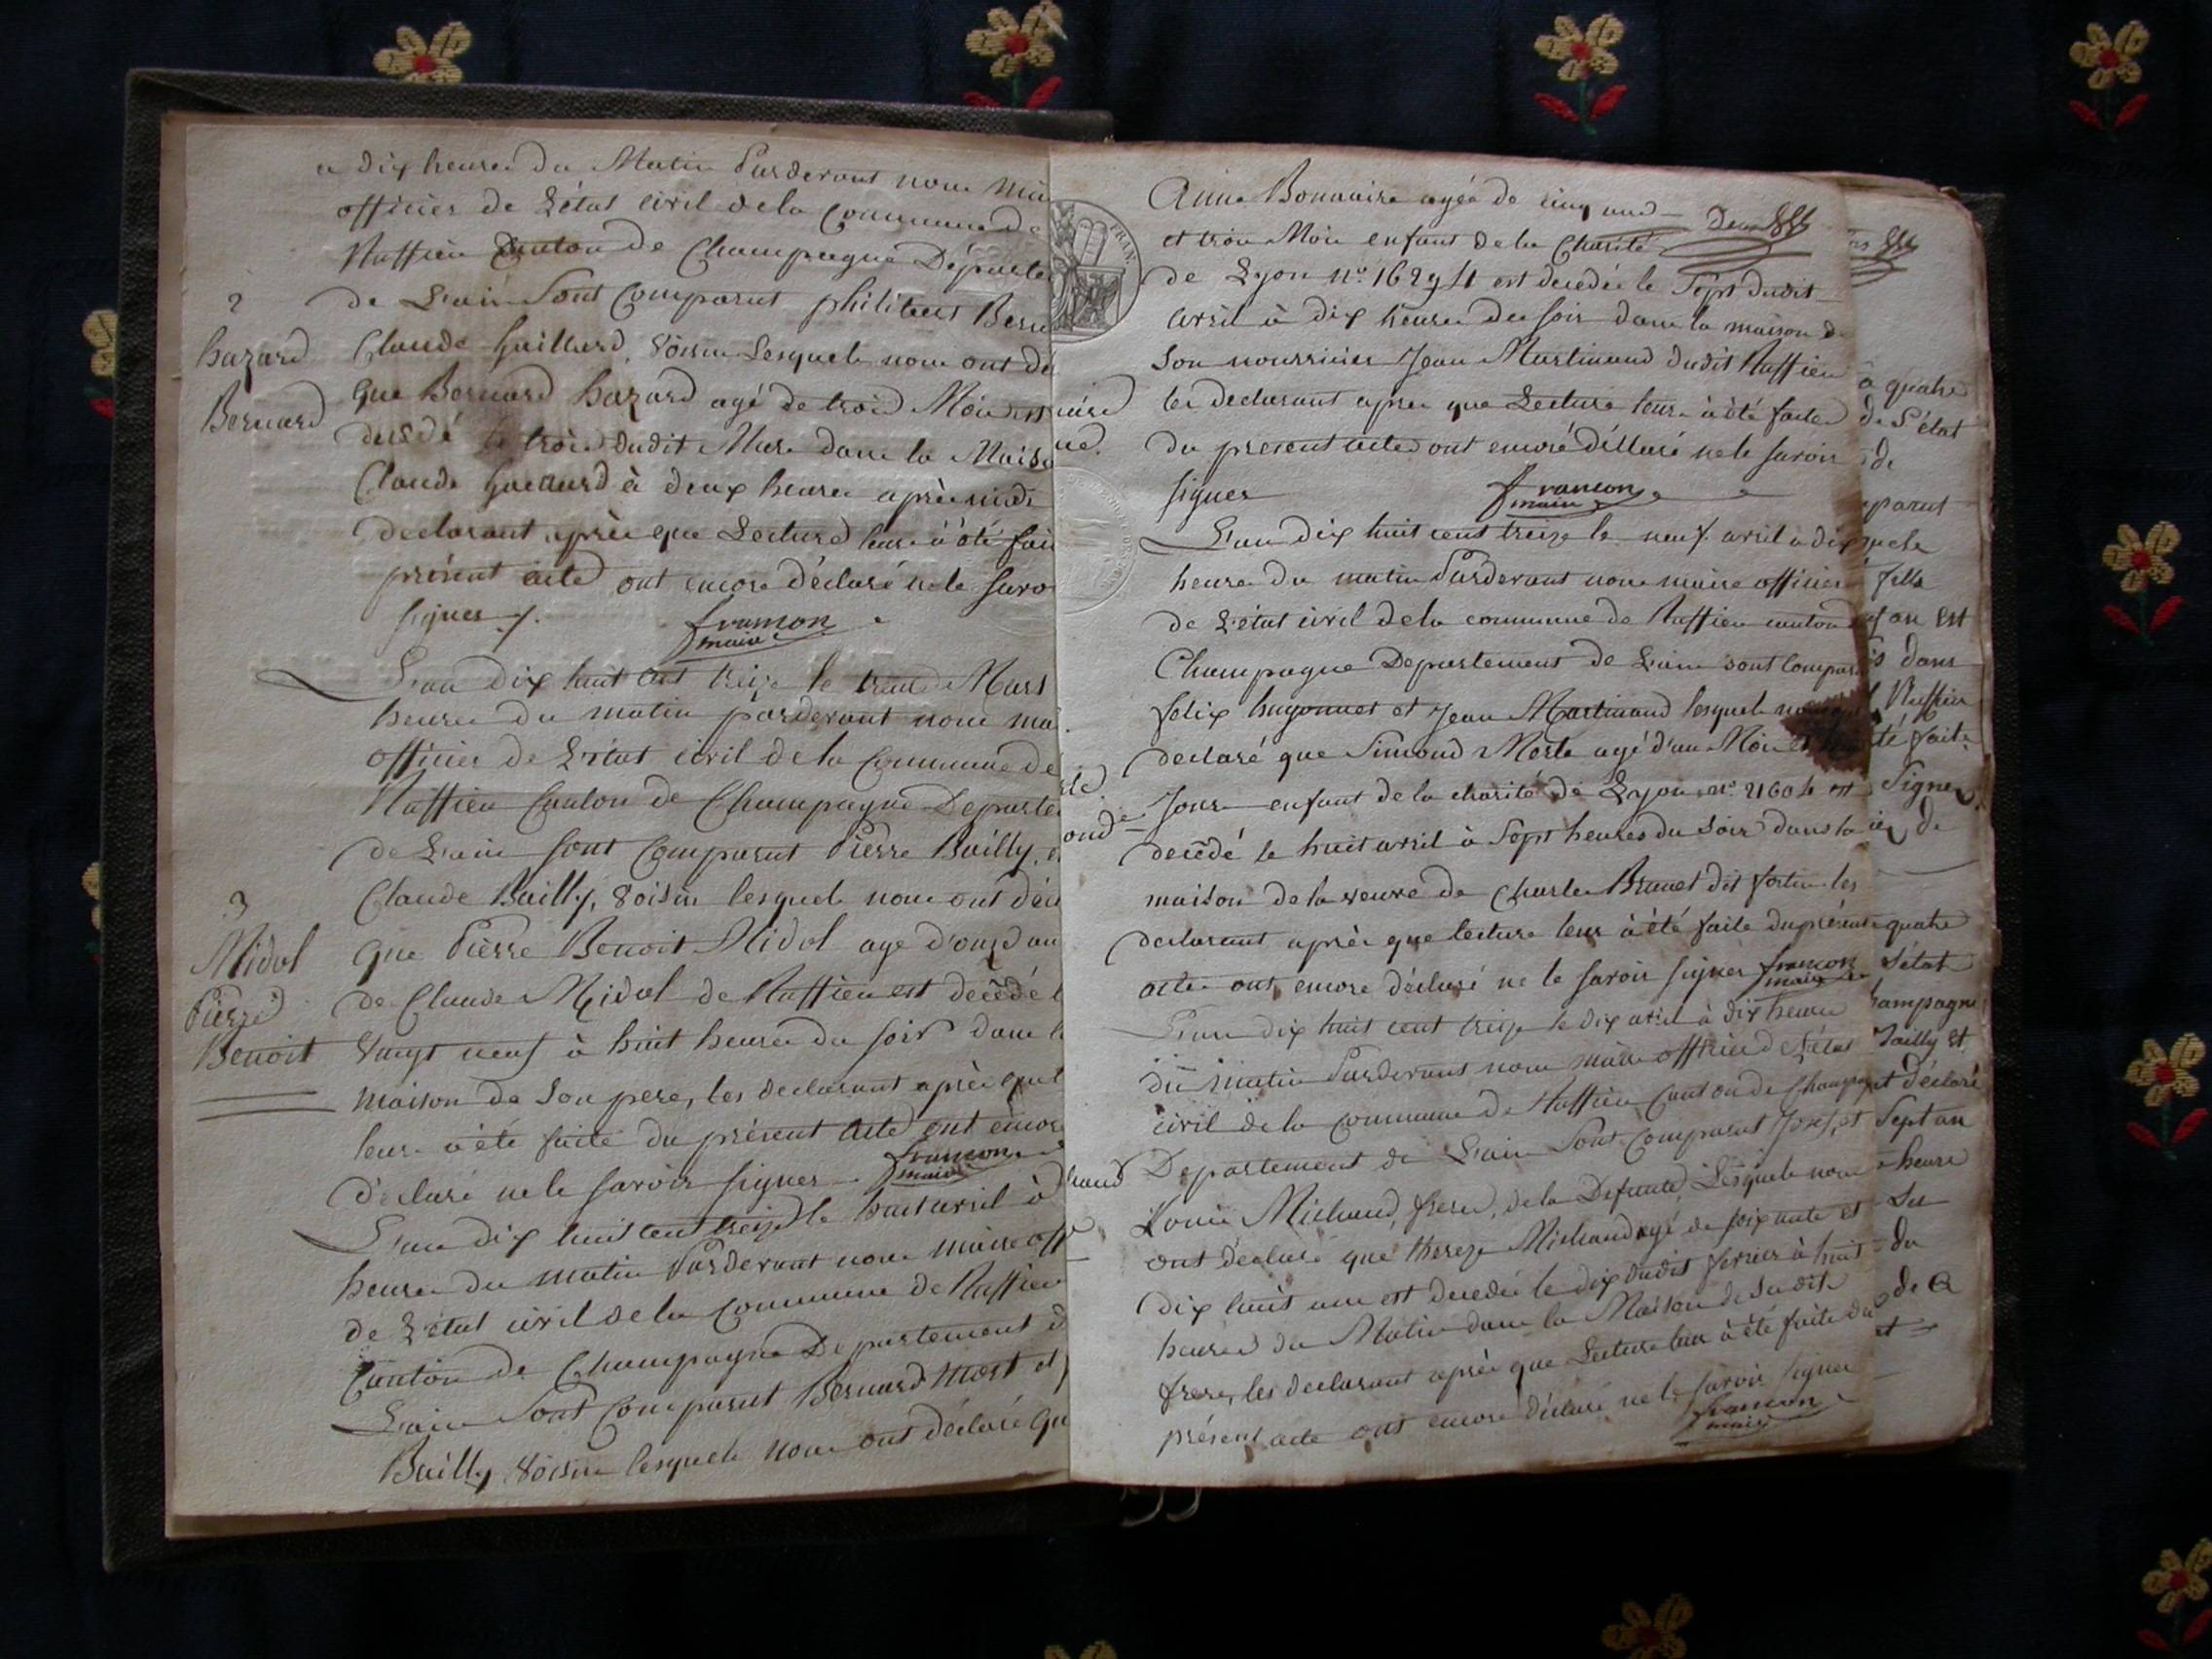 a dix heures du Matin Pardevant nous mai
officier de L'état civil de la Commune de
Ruffieu Canton de Champagne Départe
de L'ain Sont Comparut philibert Bern
Claude Guillard, Voisin Lesquels nous ont dé
2
hazard
Bernard
que Bernard hazard agé de trois Mois est
décédé le trois dudit Mars dans la Maiso
Claude Guillard à deux heures après midi
declarant après que Lecture leur à été fai
présent acte ont encore déclaré ne le savo
signer
francon
maire
L'an dix huit cent treize le trente Mars
heures du matin pardevant nous mai
officier de L'état civil de la Commune de
Ruffieu Canton de Champagne Départe
de L'ain sont Comparut Pierre Bailly, e
Claude Bailly, Voisin lesquels nous ont décl
3
Midol
Pierre
Benoit
que Pierre Benoit Midol age d'onze an
de Claude Midol de Ruffieu est décédé l
Vingt neuf à huit heures du soir dans l
maison de Son pere, les declarant après que l
leur à été faite du présent acte ont encore
déclaré ne le savoir signer
francon
maire
L'an dix huit cent treize le huit avril à d
heures du matin Pardevant nous maire off
de L'état civil de la Commune de Ruffieu
Canton de Champagne Département d
L'ain Sont Comparut Bernard Most et
Bailly Voisin lesquels nous ont déclaré qu
Anne Bonnaire agée de cinq ans
et trois Mois enfant de la Charité
de Lyon n° 16294 est decedée le Sept dudit
avril à dix heures du soir dans la maison de
Son nourricier Jean Martinand dudit Ruffieu
les declarant apres que Lecture leur à été faite
du present acte ont encore déclaré ne le savoir
signer
francon
maire
L'an dix huit cent treize le neuf avril a dix
heures du matin Pardevant nous maire officier
de L'état civil de la commune de Ruffieu canton
Champagne Departement de L'ain sont Compar
felix hugonnet et Jean Martinand lesquels nous
declaré que Simond Merle agé d'un Mois et
Jours enfant de la charité de Lyon n° 21604 est
decédé le huit avril à Sept heures du Soir dans la
maison de la veuve de Charles Brunet dit fortin les
declarant après que lecture leur à été faite du présent
acte ont encore déclaré ne le savoir signer
francon
maire
L'an dix huit cent treize le dix avril à dix heures
du matin Pardevant nous maire officier de L'état
civil de la Commune de Ruffieu Canton de Champag
Departement de L'ain Sont Comparut Josep, et
Louis Michaud, freres, de la Defunte, Lesquels nous
ont déclaré que thereze Michaud agé de soixante et
dix huit ans est decedée le dix dudit fevrier à huit
heures du Matin dans la Maison de Sudit
frere, les declarant après que Lecture leur à été faite du
présent acte ont encore déclaré ne le savoir signer
francon
maire
à quatre
de l'état
de
parut
quels
fille
an est
dans
Ruffieu
été faite
Signer
de
quatre
l'état
hampagne
Bailly et
nt déclaré
Sept an
heure
du
de
et